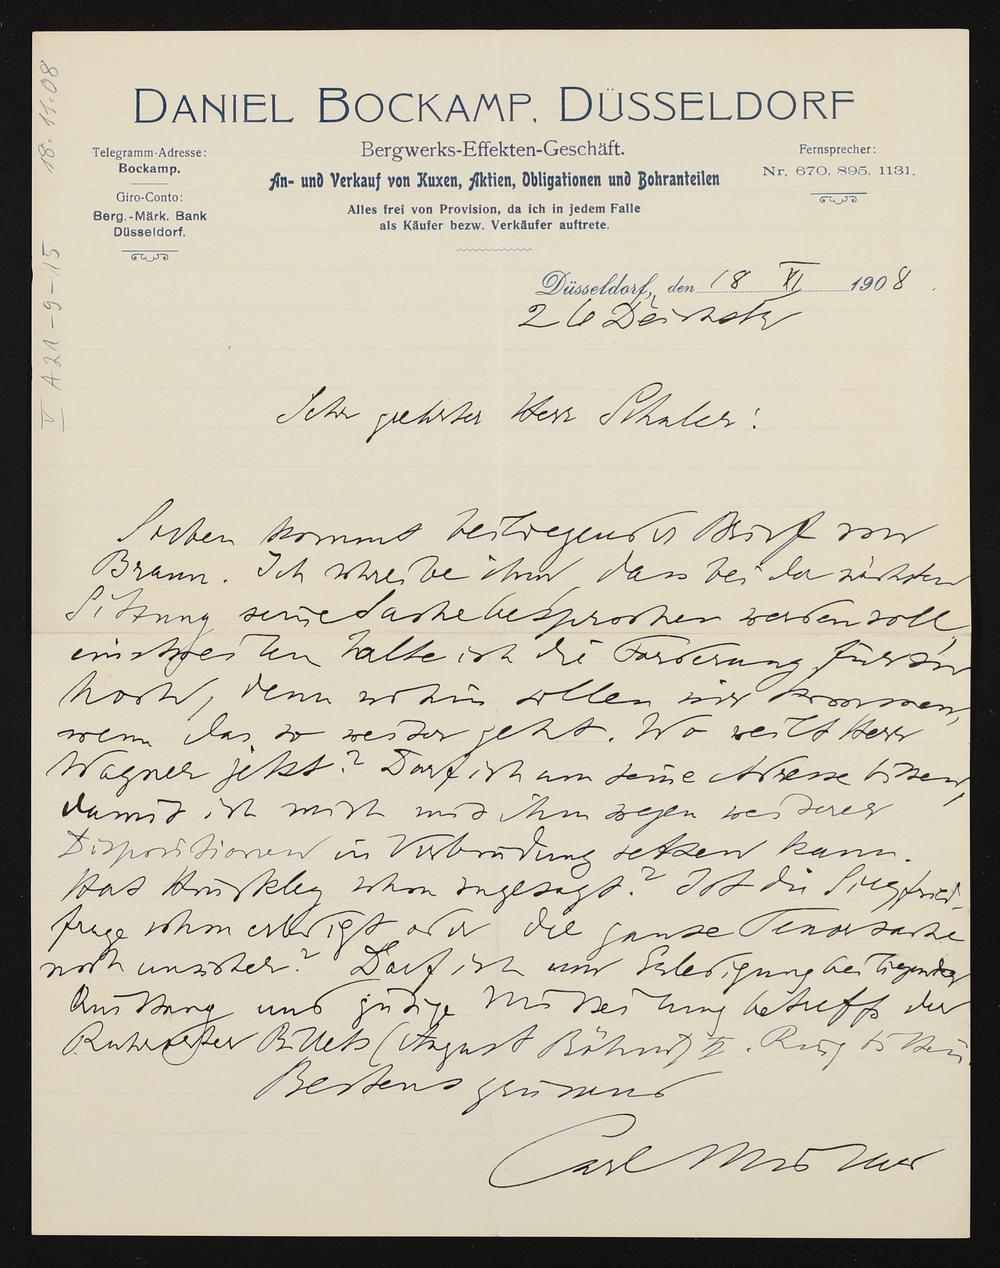 DANIEL BOCKAMP, DÜSSELDORF
Bergwerks-Effekten-Geschäft.
An- und Verkauf von Kuxen, Aktien, Obligationen und Bohranteilen
Alles frei von Provision, da ich in jedem Falle
als Käufer bezw. Verkäufer auftrete.
Telegramm-Adresse:
Bockamp.
Giro-Conto:
Berg.-Märk. Bank
Düsseldorf.
Fernsprecher:
Nr. 670, 895, 1131.
18.11.08
V A21-9-15
Düsseldorf, den 18 XI 1908.
26
Sehr geehrter Herr
Soeben kommt beiliegender Brief von
Braun. Ich schreibe ihm, dass bei der nächsten
Sitzung seine Sache besprochen werden soll,
einstweilen halte ich die Forderung für
hoch, denn wohin sollen wir kommen,
wenn das so weiter geht. Wo weilt Herr
Wagner jetzt? Darf ich um seine Adresse bitten,
damit ich mich mit ihm wegen weiterer
Dispositionen in Verbindung setzen kann.
Hat schon zugesagt? Ist die Siegfried-
frage schon erledigt oder die ganze Tenorsache
noch unsicher? Darf ich um Erledigung beiliegender
Quittung und gütige Mitteilung betreffs der
Billets (August II. Rang bitten.
Bestens grüssend
Carl